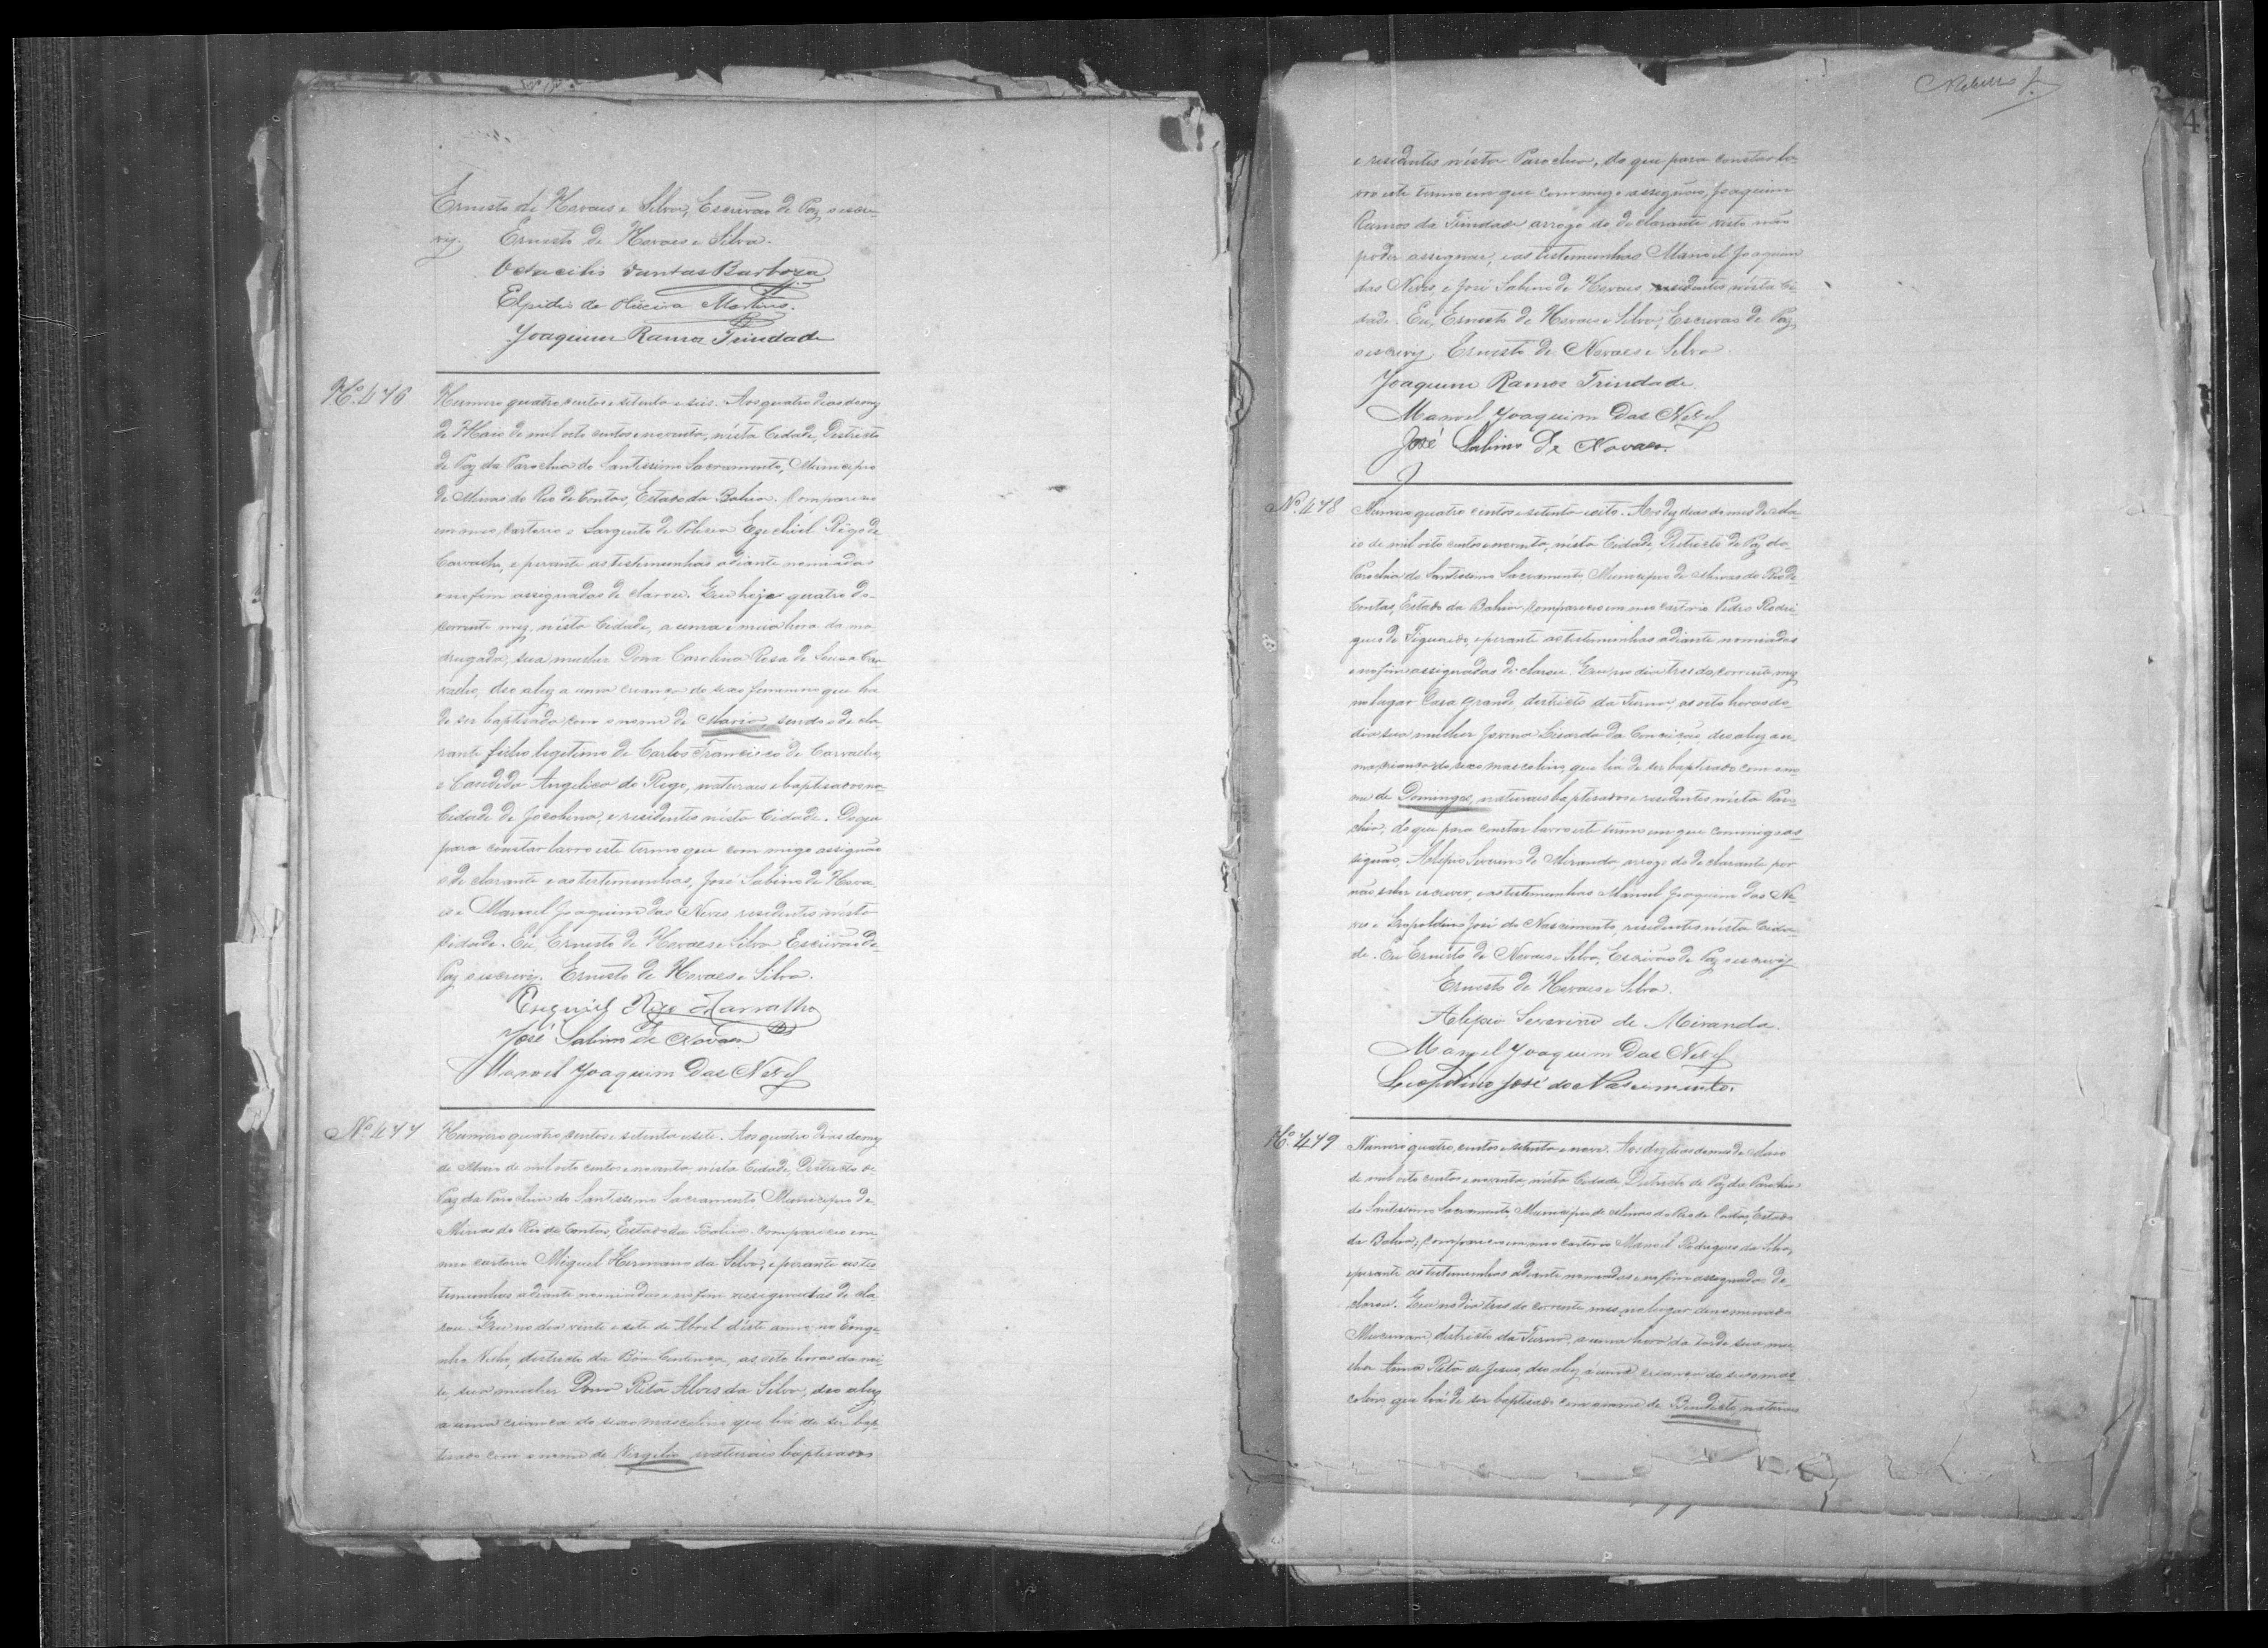 Ernesto de Novaes e Silva, Escrivão de Paz o escre-
vy. Ernesto de Novaes e Silva.
Octacilio Dantas Barboza
Elpidio de Oliveira Martins.
Joaquim Ramos Trindade
Nº. 476
Numero quatro centos e setenta e seis. Aos quatro dias do mez
de Maio de mil oito centos e noventa, nésta Cidade, Districto
de Paz da Parochia do Santissimo Sacramento, Municipio
de Minas do Rio de Contas, Estado da Bahia. Compareceo
em meo Cartorio o Sargento de Policia Ezechiel Rêgo de
Carvalho, e perante as testemunhas adiante nomiadas
e no fim assignadas declarou. Que hoje quatro do
corrente mez, nésta Cidade, a uma e meia hora da ma-
drugada, sua mulher Dona Carolina Rosa de Souza Car-
valho, deo aluz a uma criança do sexo femenino que ha
de ser baptisada com o nome de Maria, sendo o decla-
rante filho legitimo de Carlos Francisco de Carvalho,
e Candida Angelica do Rego, naturaes e baptisados na
Cidade de Jacobina, e residentes nésta Cidade. Do que
para constar lavro este termo que com migo assignão
o declarante e as testemunhas, José Sabino de Nova-
es e Manoel Joaquim das Neves residentes nésta
Cidade. Eu, Ernesto de Novaes e Silva Escrivão de
Paz o escrevy. Ernesto de Novaes e Silva.
Ezequiel Rego Carvalho
José Sabino de Novaes
Manoel Joaquim Das Neves
Nº. 477
Numero quatro centos e setenta e sete. Aos quatro dias do mez
de Maio de mil oito centos e noventa, nésta Cidade, Districto de
Paz da Parochia do Santissimo Sacramento Municipio de
Minas do Rio de Contas, Estado da Bahia. Compareceo em
meo cartorio Miguel Hermano da Silva, e perante as tes-
temunhas adiante nomiadas e no fim assignadas decla-
rou. Que no dia vinte e sete de Abril déste anno, no Enge-
nho Velho, districto da Bôa Sentença, as oito horas da noi-
te, sua mulher Dona Rita Alves da Silva, deo aluz
a uma criança do sexo masculino que há de ser bap-
tisado com o nome de Virgilio, naturais baptisados
e residentes nésta Parochia, do que para constar la-
vro este termo em que commigo assignão, Joaquim
Ramos da Trindade arrogo do declarante visto não
poder assignar, e as testemunhas Manoel Joaquim
das Neves, e José Sabino de Novaes, residentes nésta Ci-
dade. Eu, Ernesto de Novaes e Silva, Escrivão de Paz
o escrevy. Ernesto de Novaes e Silva.
Joaquim Ramos Trindade.
Manoel Joaquim Das Neves
José Sabino De Novaes.
Nº. 478
Numero quatro centos e setenta e oito. Aos dez dias do mes de Ma-
io de mil oito centos e noventa, nésta Cidade, Districto de Paz da
Parochia do Santissimo Sacramento Municipio de Minas do Rio de
Contas, Estado da Bahia, compareceo em meo cartorio Pedro Rodri-
gues de Figueredo, e perante as testemunhas adiante nomiadas
e no fim assignadas declarou. Que, no dia tres do corrente mez
no lugar Casa Grande, districto da Furna, as oito horas do
dia, sua mulher Jovina da Conceição, deo aluz a u-
ma criança do sexo masculino, que há de ser baptisado com o no-
me de Domingos, naturais baptisados e residentes nésta Paro-
chia, do que para constar lavro este termo em que commigo as-
signão, Alipio Severino de Miranda, arrogo do declarante por
não saber escrever, e as testemunhas Manoel Joaquim das Ne-
ves e Leopoldino José do Nascimento, residentes nésta Cida-
de. Eu Ernesto de Novaes e Silva, Escrivão de Paz o escrevy
Ernesto de Novaes e Silva.
Alipio Severino de Miranda.
Manoel Joaquim Das Neves
Leopoldino José do Nascimento.
Nº. 479
Numero quatro centos e setenta e nove. Aos dez dias do mes de Maio
de mil oito centos e noventa, nésta Cidade, Districto de Paz da Parochia
do Santissimo Sacramento, Municipio de Minas do Rio de Contas, Estado
da Bahia, compareceo em meo cartorio Manoel Rodrigues da Silva,
e perante as testemunhas adiante nomiadas e no fim assignadas de-
clarou. Que no dia tres do corrente mes, no lugar denominado
districto da Furna, a uma hora da tarde sua mu-
lher Anna Rita de Jesus, deo aluz á uma criança do sexo mas-
culino, que há de ser baptisado com o nome de Benedicto, naturais